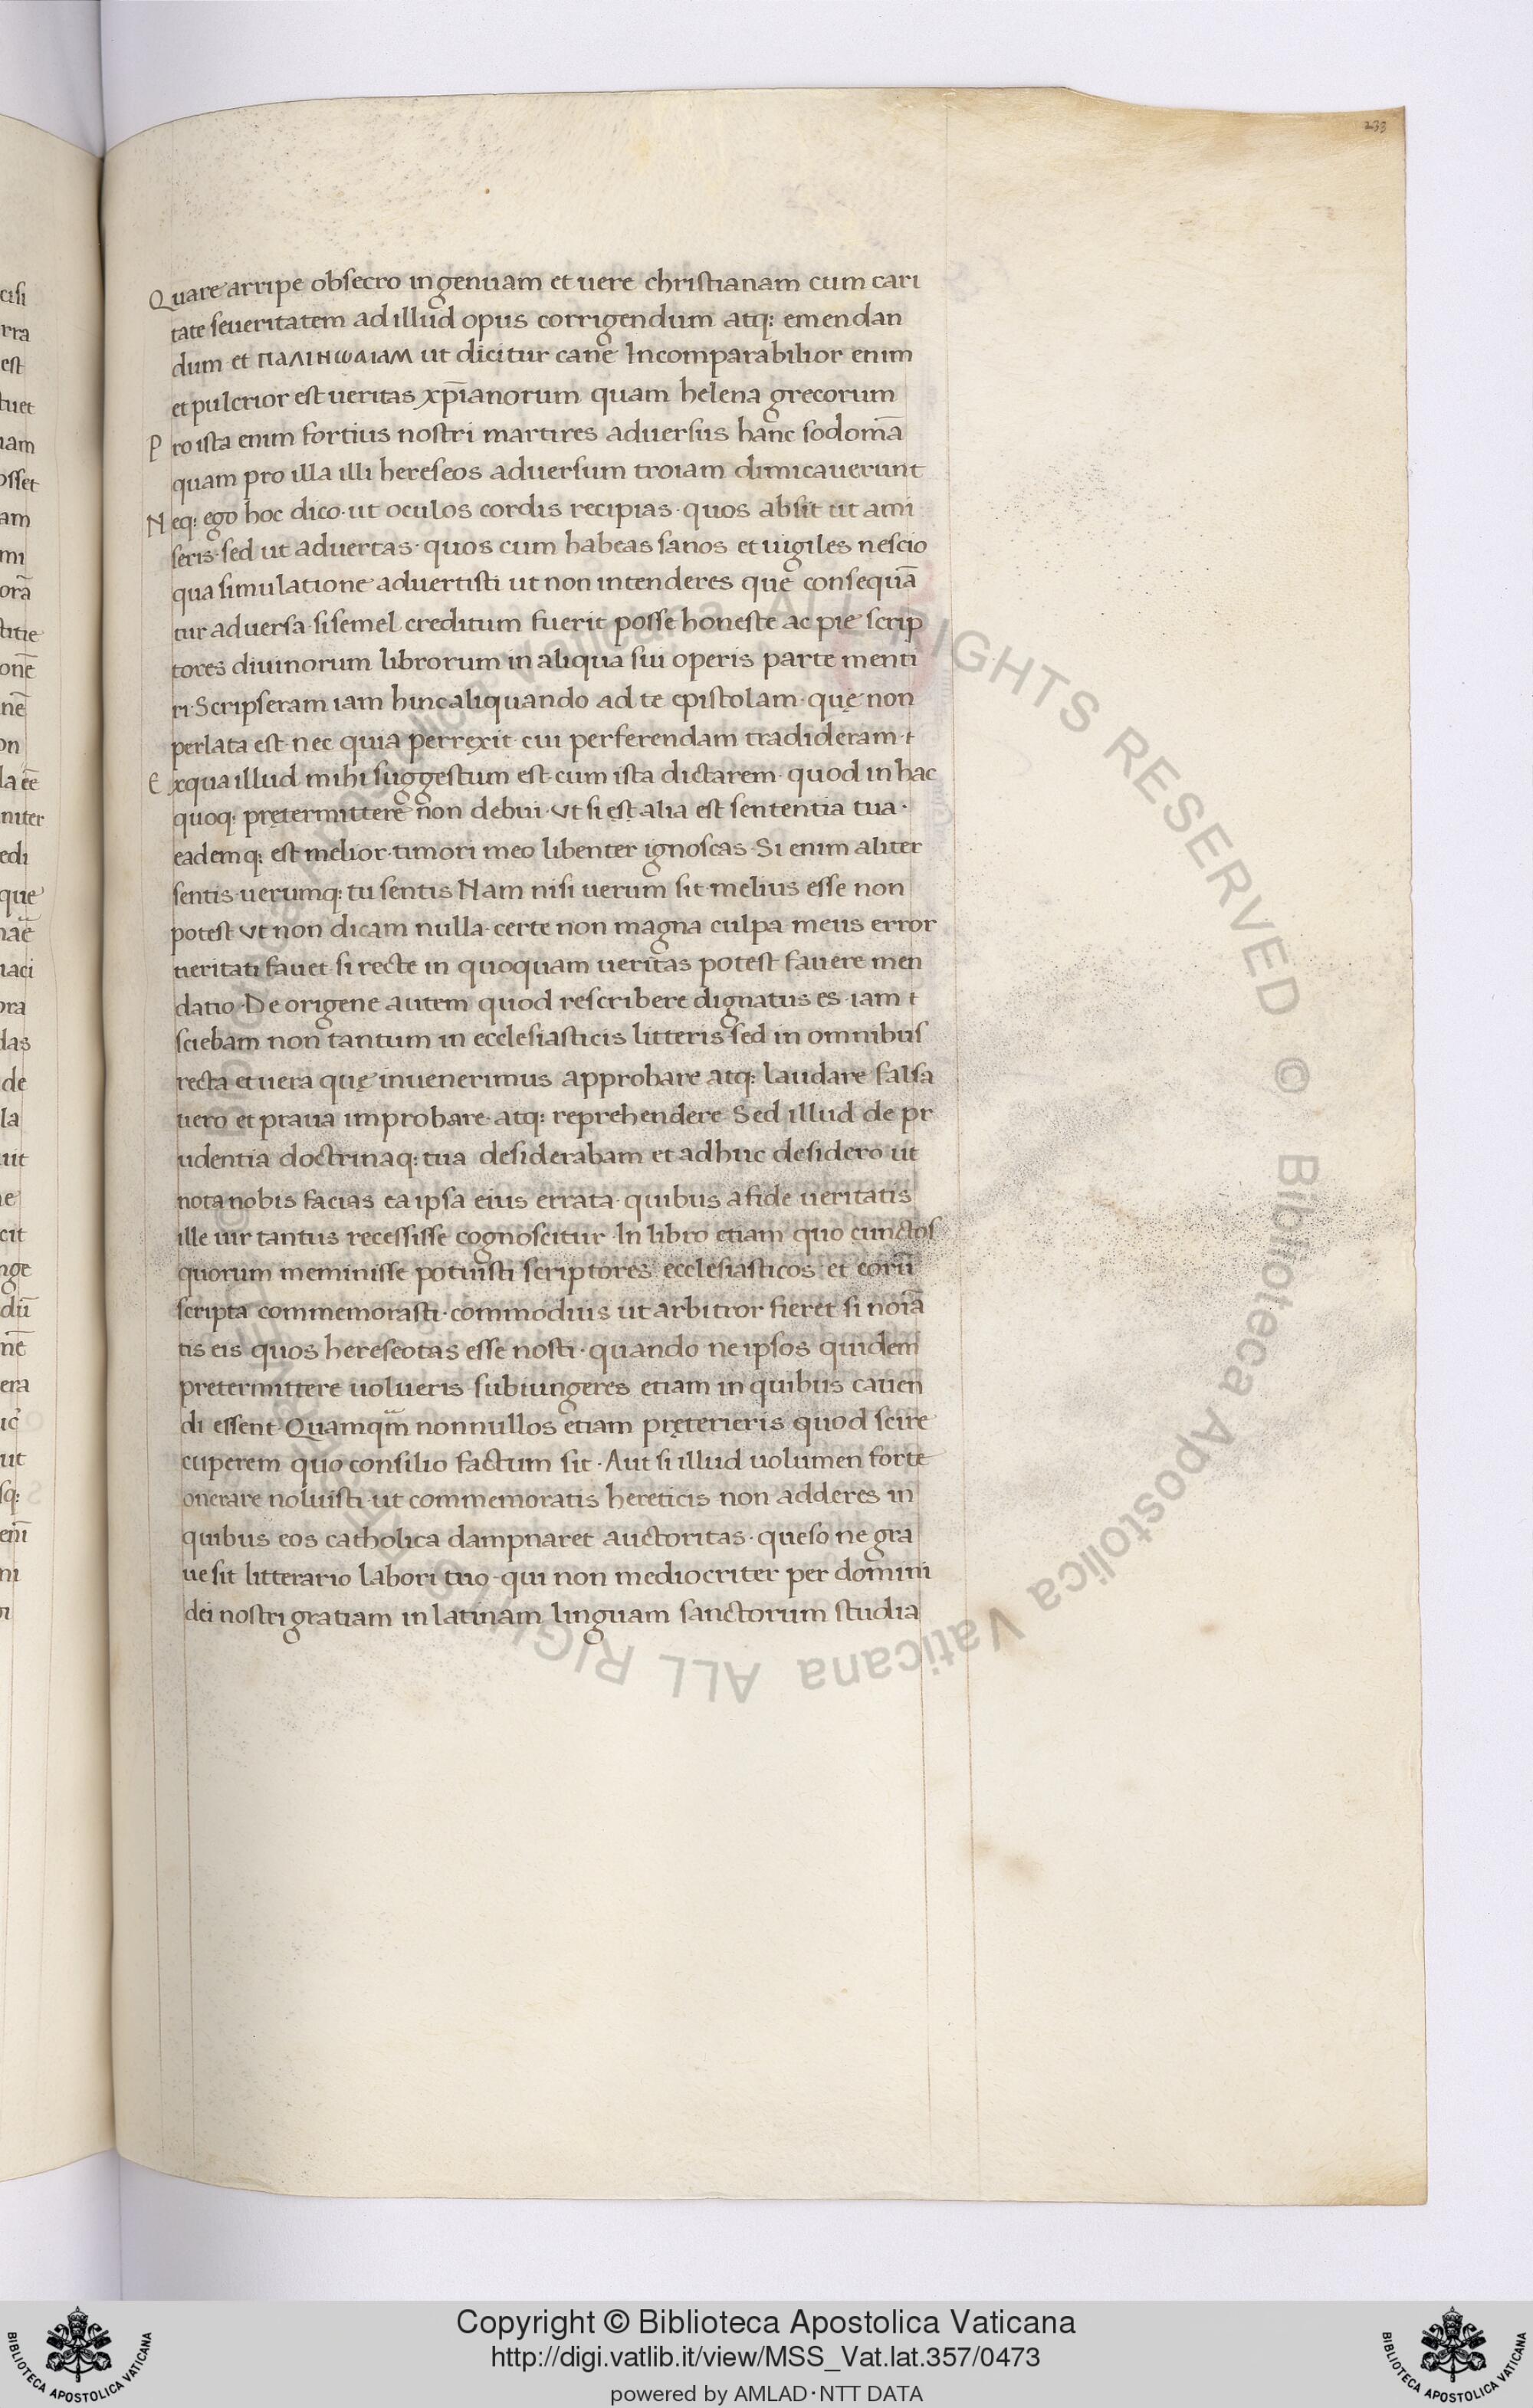 239
Quare arripe obsecro ingenuam et uere christianam cum cari
tate seueritatem ad illud opus corrigendum atq: emendan
dum et ΠΑΛΙΝωΔΙΑΜ ut dicitur cane Incomparabilior enim
et pulcrior est ueritas xp̄ianorum quam helena grecorum
Pro ista enim fortius nostri martires aduersus hanc sodomā
quam pro illa illi hereseos aduersum troiam dimicauerunt
Neq: ego hoc dico· ut oculos cordis recipias· quos absit ut ami
seris· sed ut aduertas· quos cum habeas sanos et uigiles nescio
qua simulatione aduertisti ut non intenderes que consequā
tur aduersa· si semel creditum fuerit posse honeste ac pie scrip
tores diuinorum librorum in aliqua sui operis parte menti
ri· Scripseram iam hinc aliquando ad te epistolam· quę non
perlata est· nec quia perrexit· cui perferendam tradideram· t
Exqua illud mihi suggestum est· cum ista dictarem· quod in hac
quoq: prętermittere non debui· Vt si est alia est sententia tua·
eademq: est melior· timori meo libenter ignoscas· Si enim aliter
sentis· uerumq: tu sentis Nam nisi uerum sit· melius esse non
potest Vt non dicam nulla· certe non magna culpa meus error
ueritati fauet· si recte in quoquam ueritas potest fauere men
datio· De origene autem quod rescribere dignatus es· iam t
sciebam non tantum in ecclesiasticis litteris· sed in omnibus
recta et uera quę inuenerimus approbare atq: laudare falsa
uero et praua improbare· atq: reprehendere· Sed illud de pr
udentia doctrinaq: tua desiderabam et adhuc desidero ut
nota nobis facias ea ipsa eius errata· quibus a fide ueritatis
ille uir tantus recessisse cognoscitur· In libro etiam quo cunctos
quorum meminisse potuisti scriptores ecclesiasticos et eorū
scripta commemorasti· commodius ut arbitror fieret si noīa
tis eis quos hereseotas esse nosti· quando ne ipsos quidem
pretermittere uolueris· subiungeres etiam in quibus cauen
di essent· Quamqm̄ nonnullos etiam pręterieris quod scire
cuperem quo consilio factum sit· Aut si illud uolumen forte
onerare noluisti· ut commemoratis hereticis non adderes in
quibus eos catholica dampnaret auctoritas· queso ne gra
ue sit litterario labori tuo· qui non mediocriter per domini
dei nostri gratiam in latinam linguam sanctorum studia
© Biblioteca Apostolica Vaticana ALL RIGHTS RESERVED
Copyright © Biblioteca Apostolica Vaticana
http://digi.vatlib.it/view/MSS_Vat.lat.357/0473
powered by AMLAD·NTT DATA
BIBLIOTECA APOSTOLICA VATICANA
BIBLIOTECA APOSTOLICA VATICANA